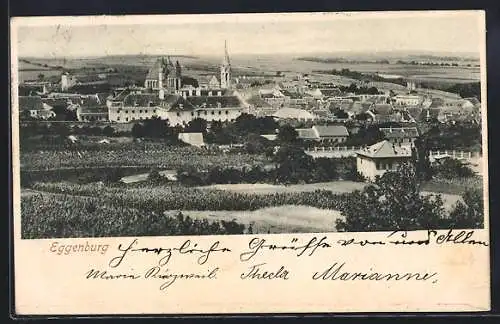 Eggenburg herzliche Grüße von uns Allen
Marie Thecla Marianne.